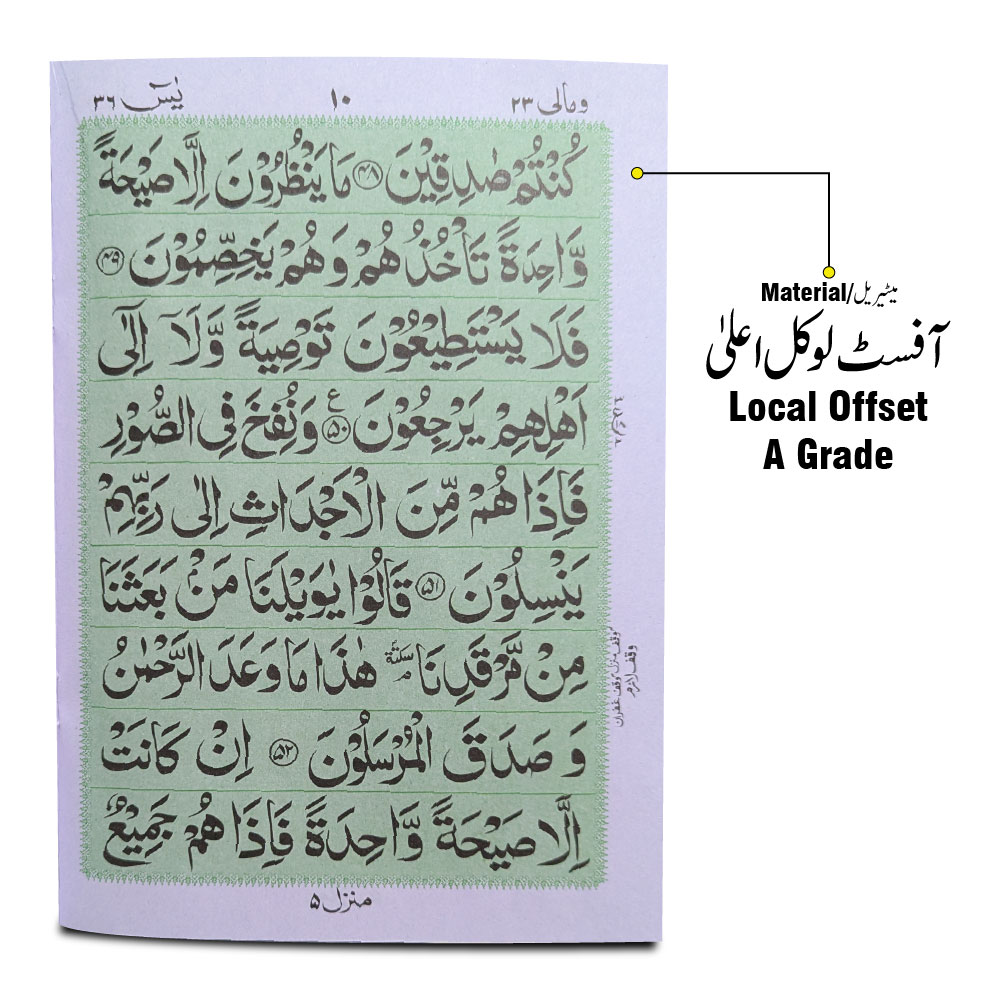 ومالی ۲۳
۱۰
یٰسٓ ۳۶
كُنْتُمْ صٰدِقِيْنَ ۴۸ مَا يَنْظُرُوْنَ اِلَّا صَيْحَةً
وَّاحِدَةً تَاْخُذُهُمْ وَهُمْ يَخِصِّمُوْنَ ۴۹
فَلَا يَسْتَطِيْعُوْنَ تَوْصِيَةً وَّلَآ اِلٰٓى
اَهْلِهِمْ يَرْجِعُوْنَ ۵۰ ع وَنُفِخَ فِى الصُّوْرِ
فَاِذَا هُمْ مِّنَ الْاَجْدَاثِ اِلٰى رَبِّهِمْ
يَنْسِلُوْنَ ۵۱ قَالُوْا يٰوَيْلَنَا مَنْۢ بَعَثَنَا
مِنْ مَّرْقَدِنَا سكتة هٰذَا مَا وَعَدَ الرَّحْمٰنُ
وَ صَدَقَ الْمُرْسَلُوْنَ ۵۲ اِنْ كَانَتْ
اِلَّا صَيْحَةً وَّاحِدَةً فَاِذَا هُمْ جَمِيْعٌ
وقف منزل وقف غفران
وقف لازم
منزل ۵
Material/میٹیریل
آفسٹ لوکل اعلیٰ
Local Offset
A Grade